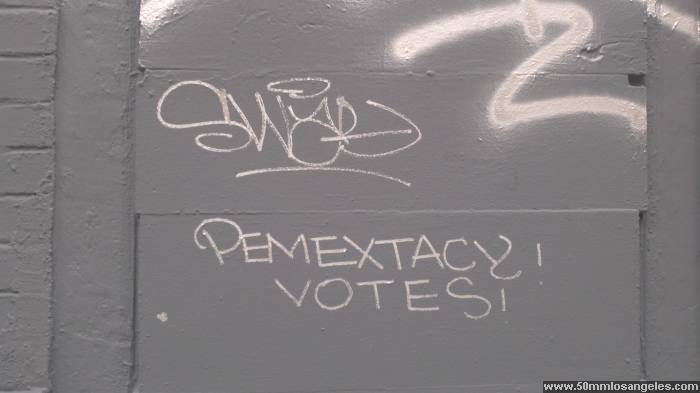 PEMEXTACY!
VOTES!
www.50mmlosangeles.com